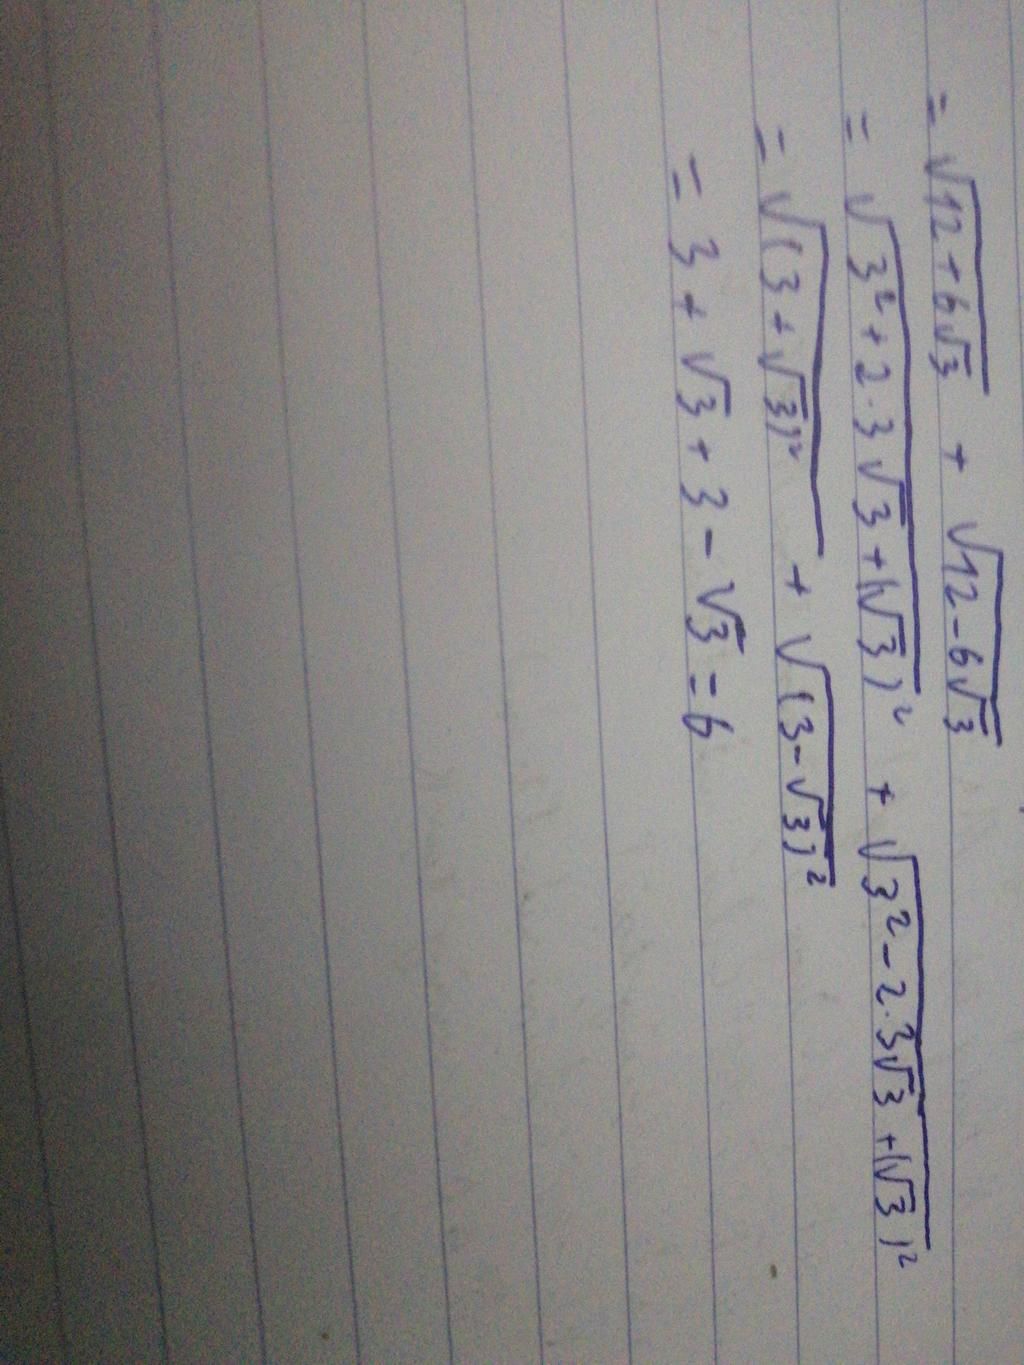 = √12+6√3 + √12-6√3
= √3²+2·3√3+(√3)² + √3²-2·3√3+(√3)²
= √(3+√3)² + √(3-√3)²
= 3+√3+3-√3=6